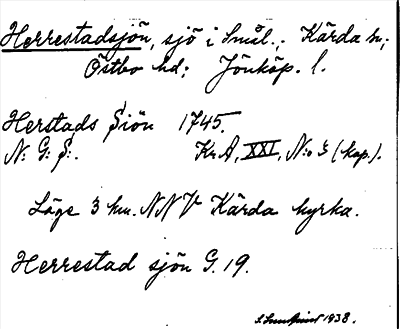 Herrestadsjön, sjö i Smål., Kärda sn;
Östbo hd; Jönköp. l.
Herstads Siön 1745.
N: G: S:. Kr. A, XXI, N:o 3 (kop.).
Läge 3 km. NNV Kärda kyrka.
Herrestad sjön G. 19.
1938.